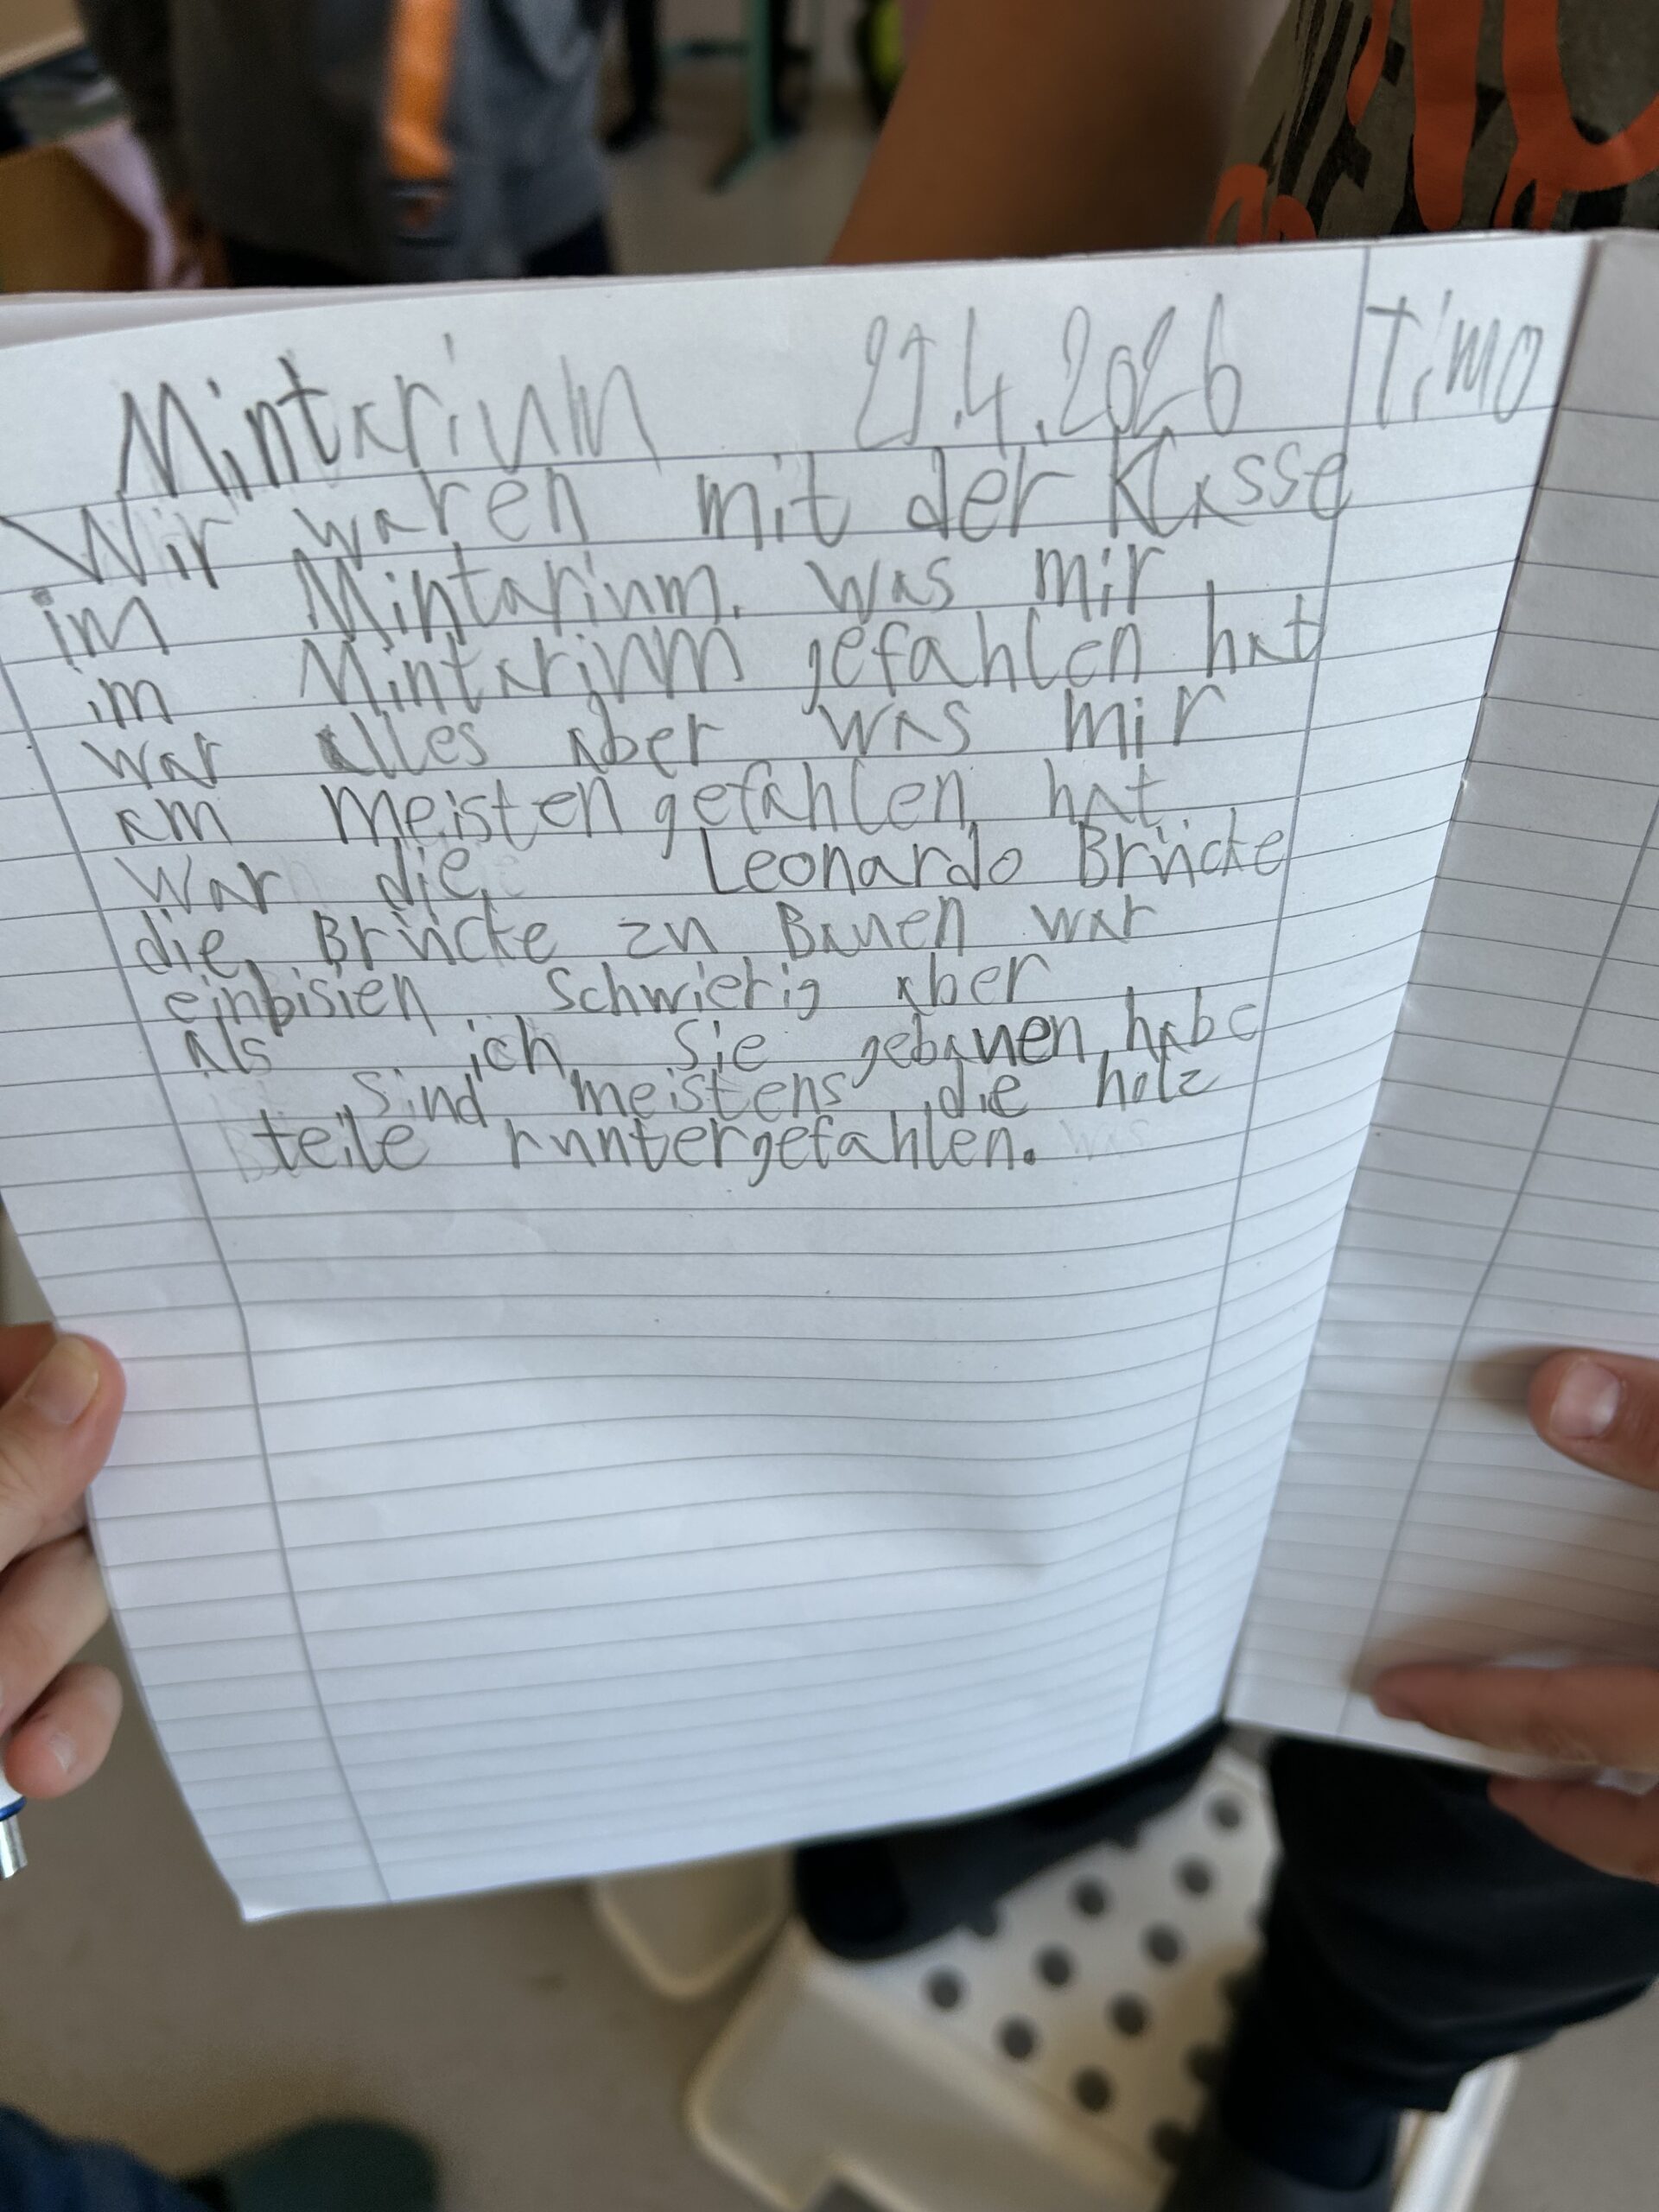 Mintarium 21.4.2026 Timo
Wir waren mit der Klasse
im Mintarium. Was mir
im Mintarium gefahlen hat
war alles aber was mir
am meisten gefahlen hat
war die Leonardo Brücke
die Brücke zu Bauen war
einbisien Schwierig aber
als ich Sie gebauen habe
Sind meistens die holz
teile runntergefahlen.